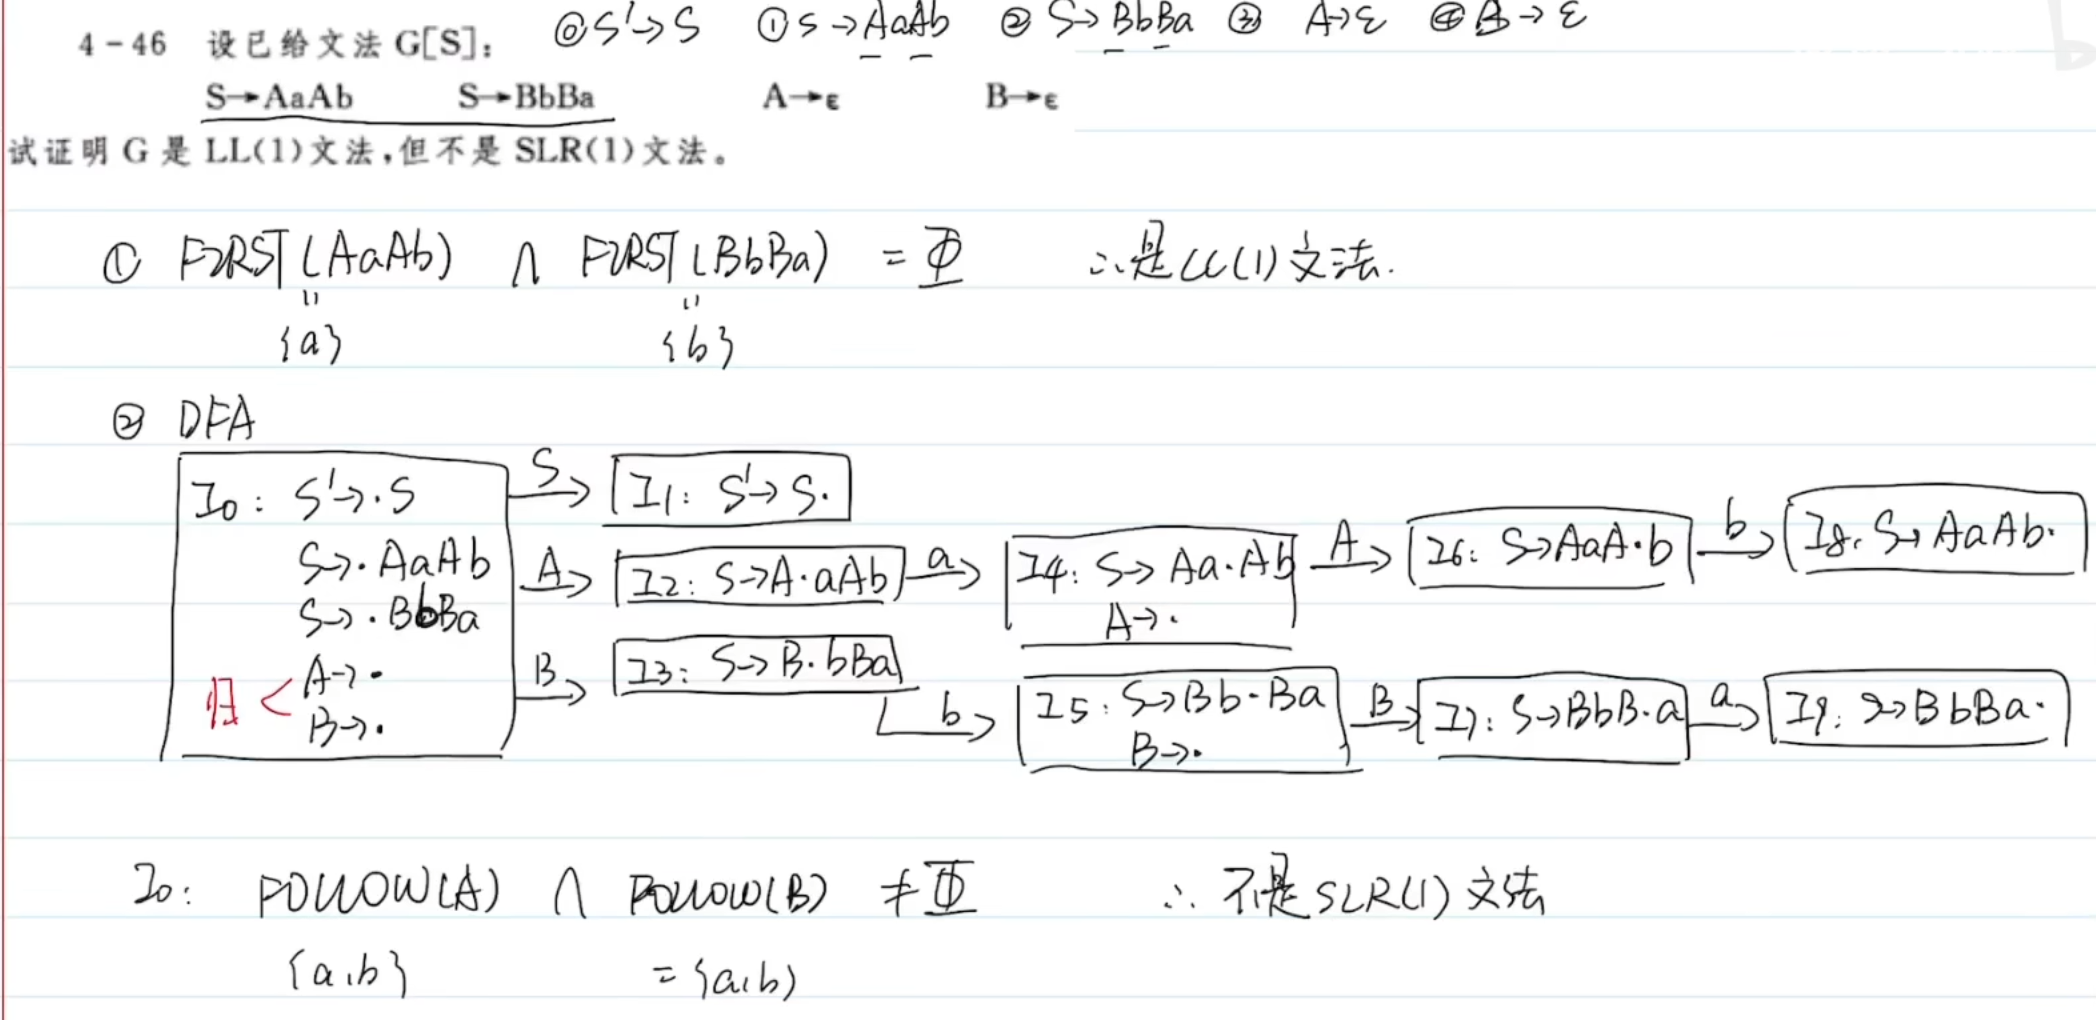 ⓪S'→S ①S→AaAb ②S→BbBa ③ A→ε ④B→ε
4-46 设已给文法G[S]:
S→AaAb S→BbBa A→ε B→ε
试证明G是LL(1)文法,但不是SLR(1)文法。
① FIRST(AaAb) ∩ FIRST(BbBa) = Φ ∴是LL(1)文法.
{a} {b}
② DFA
I0: S'→.S
S→.AaAb
S→.BbBa
归 < A→.
B→.
S
I1: S'→S.
A
I2: S→A.aAb
a
I4: S→Aa.Ab
A→.
A
I6: S→AaA.b
b
I8: S→AaAb.
B
I3: S→B.bBa
b
I5: S→Bb.Ba
B→.
B
I7: S→BbB.a
a
I9: S→BbBa.
I0: FOLLOW(A) ∩ FOLLOW(B) ≠Φ ∴ 不是SLR(1)文法
{a,b} ={a,b}